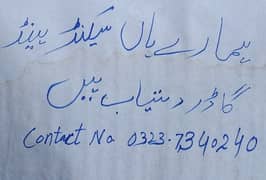 ہمارے ہاں سیکنڈ ہینڈ
گاڈر دستیاب ہیں
Contact No 0323-7340240